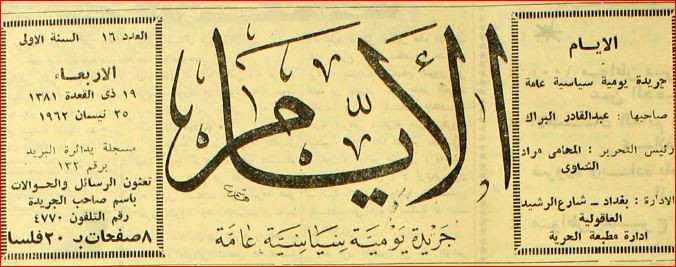 الايام
جريدة يومية سياسية عامة
صاحبها : عبدالقادر البراك
رئيس التحرير : المحامي مراد
الشاوي
الادارة : بغداد ــ شارع الرشيد
العاقولية
ادارة مطبعة الحرية
الأيام
جريدة يومية سياسية عامة
العدد ١٦ السنة الاولى
الاربعاء
١٩ ذي القعدة ١٣٨١
٢٥ نيسان ١٩٦٢
مسجلة بدائرة البريد
برقم ١٣٢
تعنون الرسائل والحوالات
باسم صاحب الجريدة
رقم التلفون ٤٧٧٠
٨ صفحات بـ ٢٠ فلسا